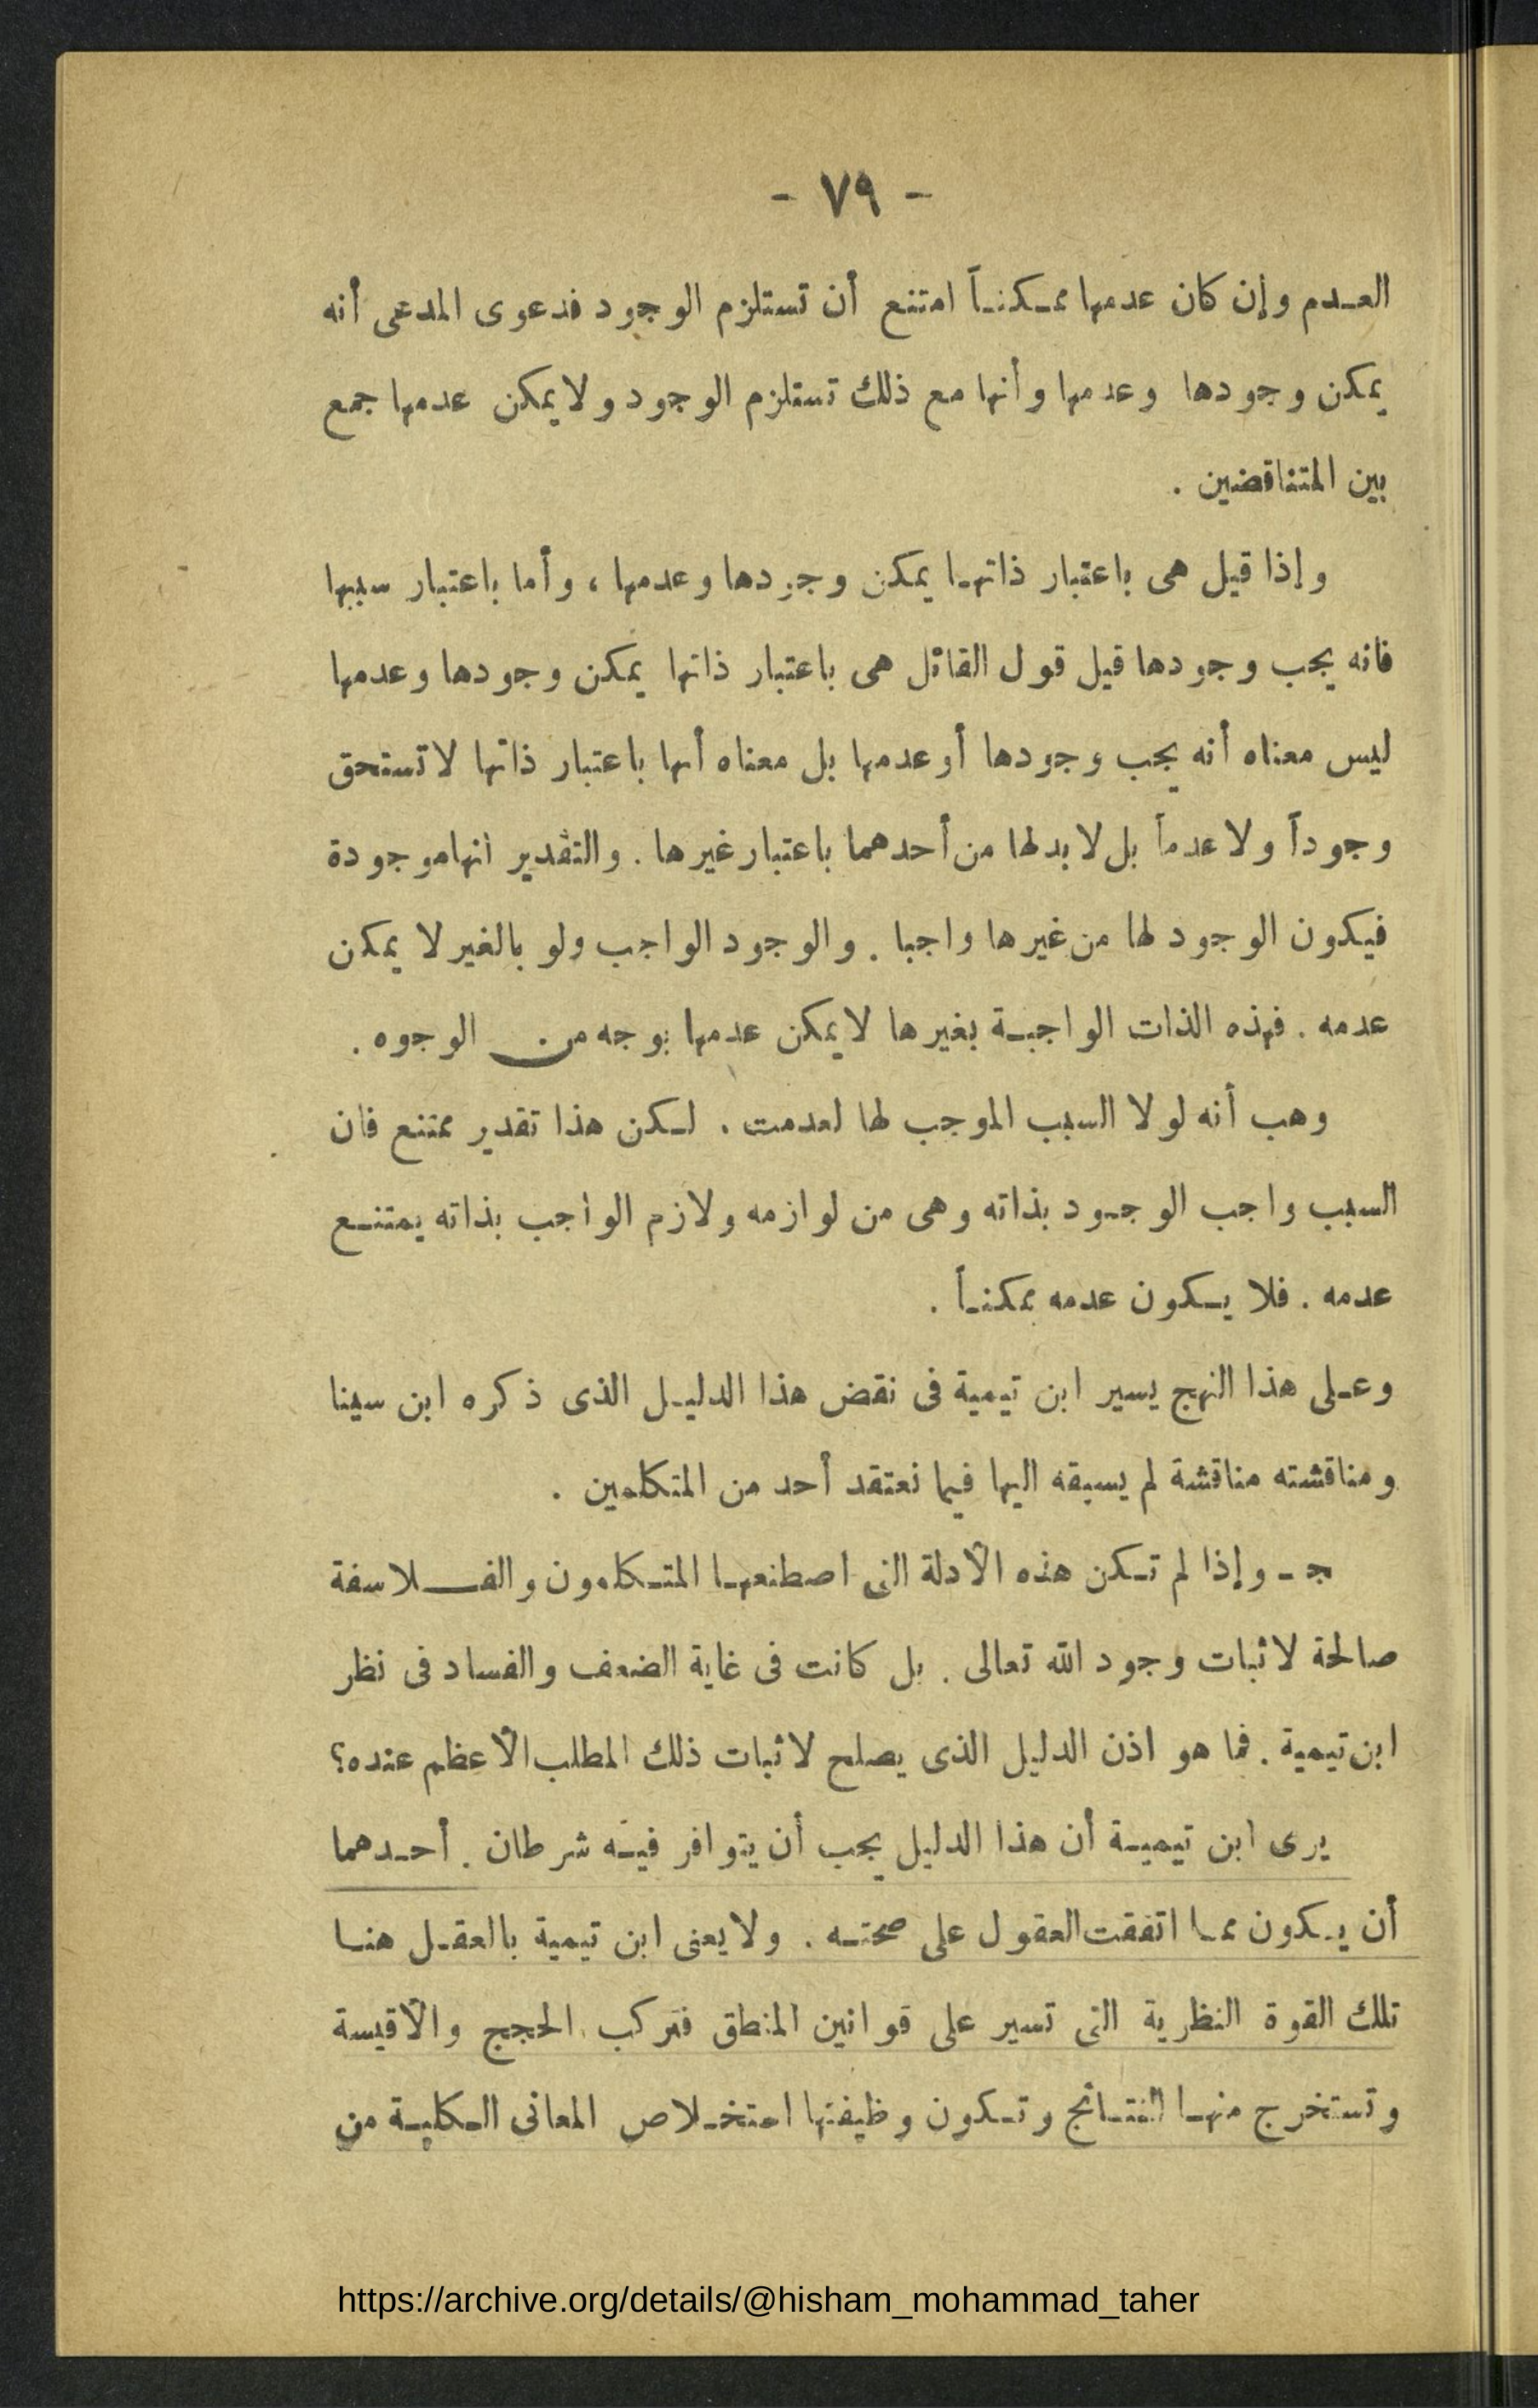 - ٧٩ -
العدم وإن كان عدمها ممكناً امتنع أن تستلزم الوجود فدعوى المدعى أنه
يمكن وجودها وعدمها وأنها مع ذلك تستلزم الوجود ولا يمكن عدمها جمع
بين المتناقضين .
وإذا قيل هى باعتبار ذاتها يمكن وجودها وعدمها ، وأما باعتبار سببها
فانه يجب وجودها قيل قول القائل هى باعتبار ذاتها يمكن وجودها وعدمها
ليس معناه أنه يجب وجودها أو عدمها بل معناه أنها باعتبار ذاتها لا تستحق
وجوداً ولا عدماً بل لا بد لها من أحدهما باعتبار غيرها . والتقدير أنها موجودة
فيكون الوجود لها من غيرها واجبا . والوجود الواجب ولو بالغير لا يمكن
عدمه . فهذه الذات الواجبة بغيرها لا يمكن عدمها بوجه من الوجوه .
وهب أنه لولا السبب الموجب لها لعدمت . لكن هذا تقدير ممتنع فان
السبب واجب الوجود بذاته وهى من لوازمه ولازم الواجب بذاته يمتنع
عدمه . فلا يكون عدمه ممكناً .
وعلى هذا النهج يسير ابن تيمية فى نقض هذا الدليل الذى ذكره ابن سينا
ومناقشته مناقشة لم يسبقه اليها فيما نعتقد أحد من المتكلمين .
جـ - وإذا لم تكن هذه الأدلة التى اصطنعها المتكلمون والفلاسفة
صالحة لاثبات وجود الله تعالى . بل كانت فى غاية الضعف والفساد فى نظر
ابن تيمية . فما هو اذن الدليل الذى يصلح لاثبات ذلك المطلب الأعظم عنده؟
يرى ابن تيمية أن هذا الدليل يجب أن يتوافر فيه شرطان . أحدهما
أن يكون مما اتفقت العقول على صحته . ولا يعنى ابن تيمية بالعقل هنا
تلك القوة النظرية التى تسير على قوانين المنطق فتركب الحجج والأقيسة
وتستخرج منها النتائج وتكون وظيفتها استخلاص المعانى الكلية من
https://archive.org/details/@hisham_mohammad_taher